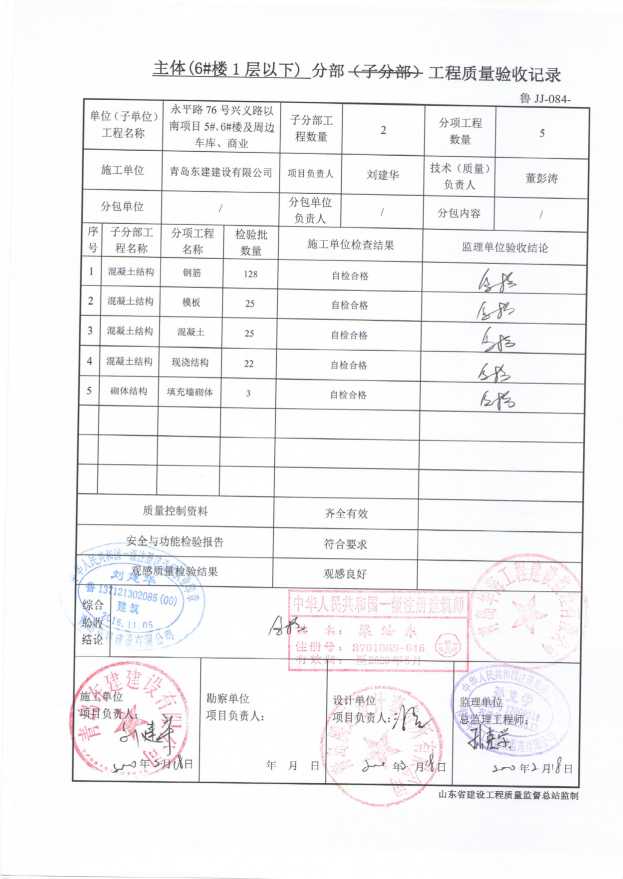 主体(6#楼1层以下) 分部(子分部)工程质量验收记录
鲁 JJ-084-
单位(子单位)工程名称 永平路76号兴义路以南项目5#.6#楼及周边车库、商业 子分部工程数量 2 分项工程数量 5
施工单位 青岛东建建设有限公司 项目负责人 刘建华 技术(质量)负责人 董彭涛
分包单位 / 分包单位负责人 / 分包内容 /
序号 子分部工程名称 分项工程名称 检验批数量 施工单位检查结果 监理单位验收结论
1 混凝土结构 钢筋 128 自检合格 合格
2 混凝土结构 模板 25 自检合格 合格
3 混凝土结构 混凝土 25 自检合格 合格
4 混凝土结构 现浇结构 22 自检合格 合格
5 砌体结构 填充墙砌体 3 自检合格 合格
质量控制资料 齐全有效
安全与功能检验报告 符合要求
观感质量检验结果 观感良好
综合验收结论 合格
刘建华
鲁 137121302085(00)
建筑
中华人民共和国一级注册建筑师
注册号:
施工单位 勘察单位 设计单位 监理单位
项目负责人: 项目负责人: 项目负责人: 总监理工程师:
刘建华
年 月 日 年 月 日 年 月 日 年 月 日
山东省建设工程质量监督总站监制